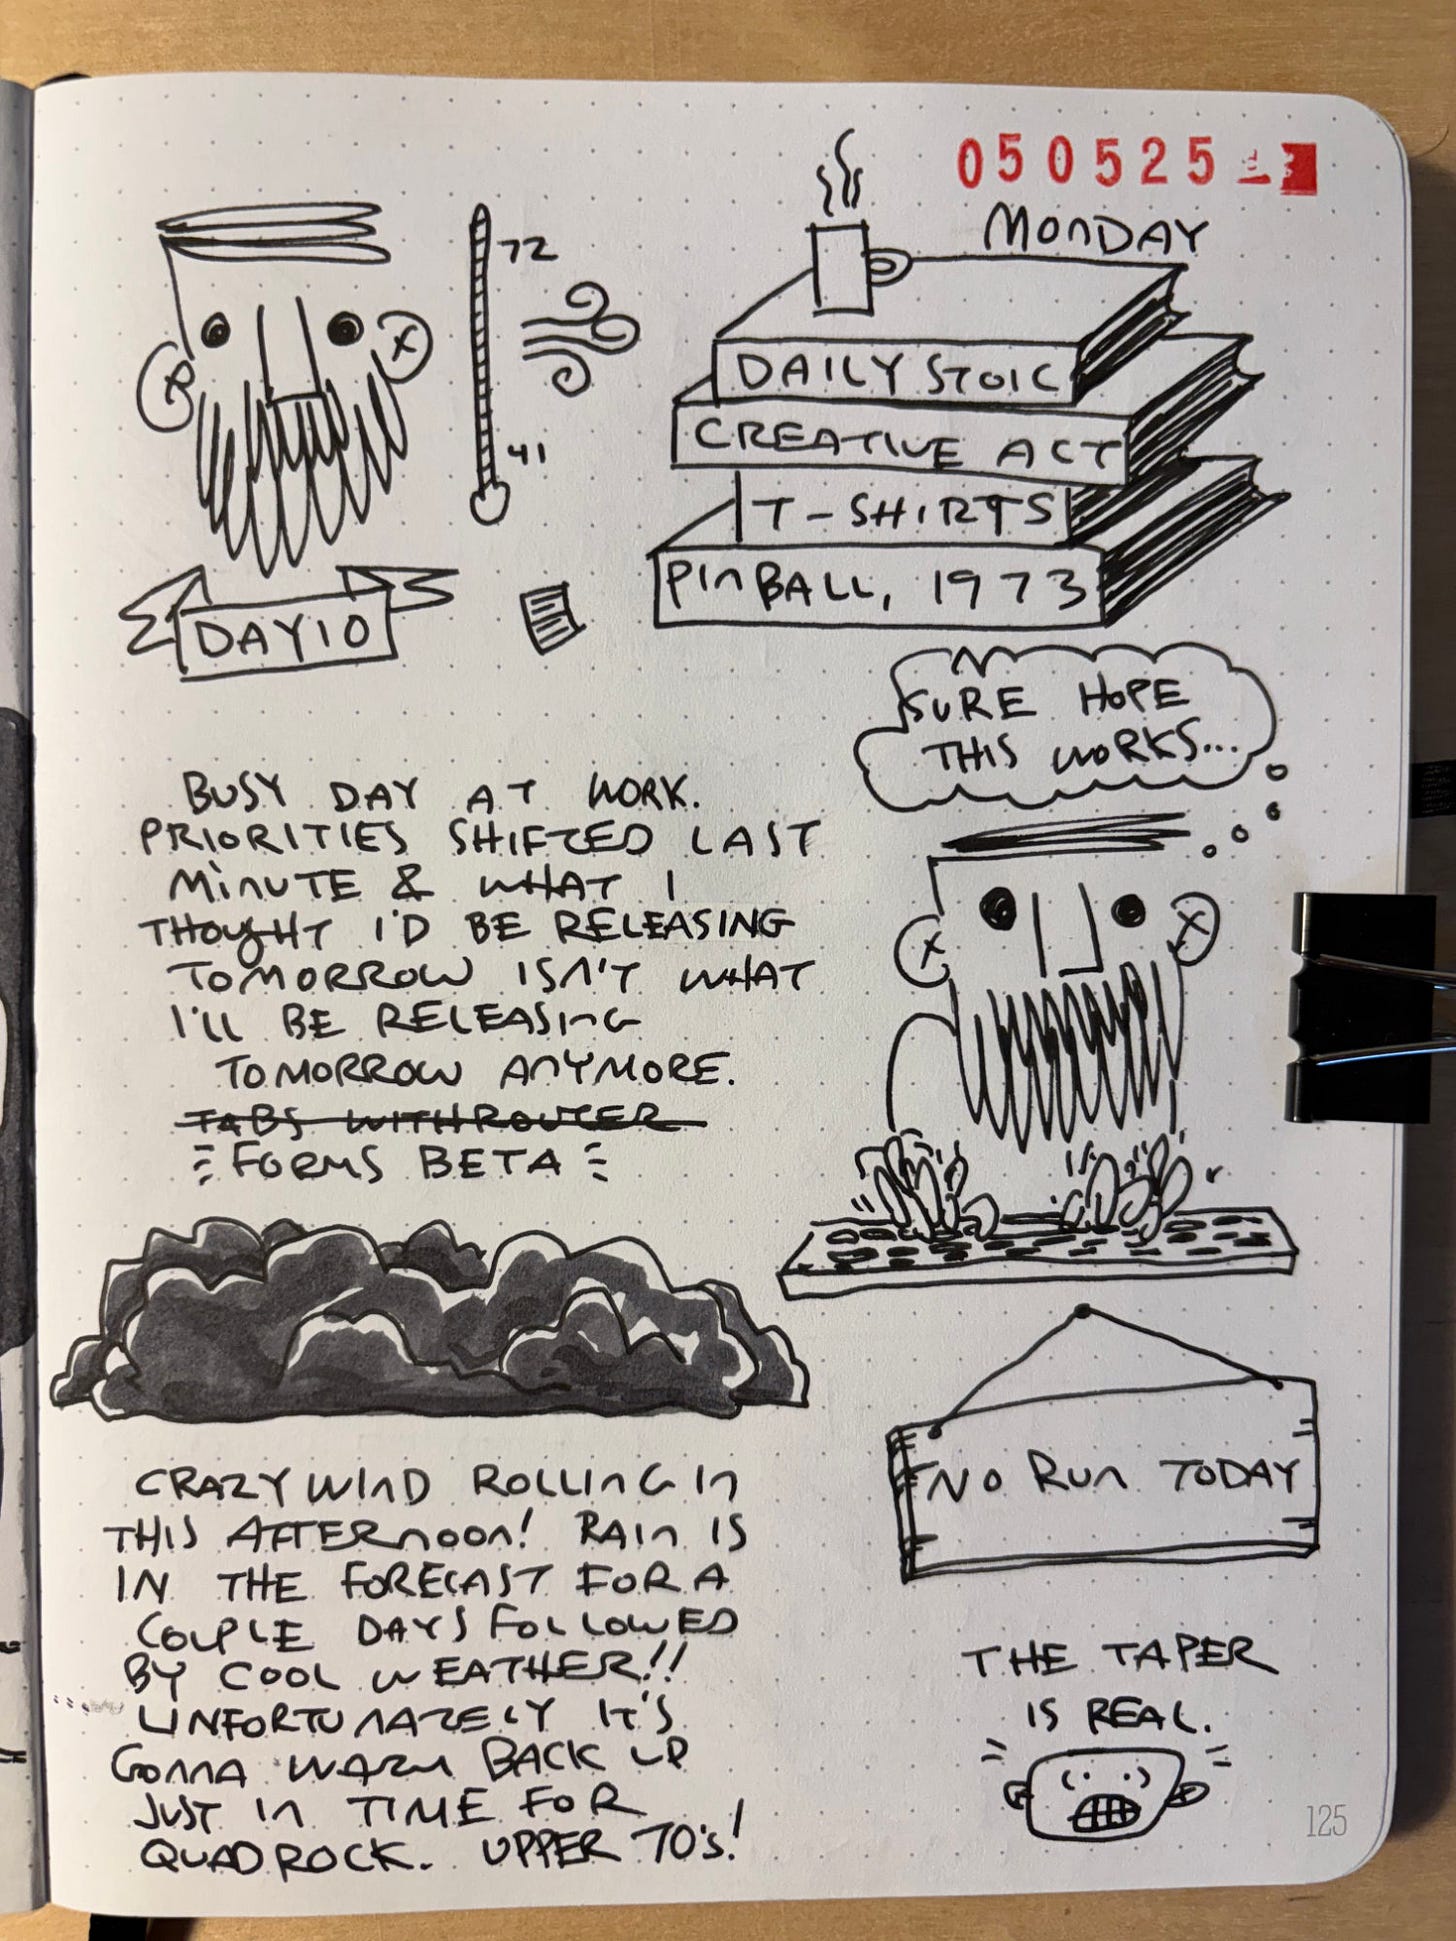 050525
MONDAY
72
41
DAILY STOIC
CREATIVE ACT
T-SHIRTS
PINBALL, 1973
DAY 10
SURE HOPE
THIS WORKS...
BUSY DAY AT WORK.
PRIORITIES SHIFTED LAST
MINUTE & WHAT I
THOUGHT I'D BE RELEASING
TOMORROW ISN'T WHAT
I'LL BE RELEASING
TOMORROW ANYMORE.
TABS WITH ROUTER
FORMS BETA
CRAZY WIND ROLLING IN
THIS AFTERNOON! RAIN IS
IN THE FORECAST FOR A
COUPLE DAYS FOLLOWED
BY COOL WEATHER!!
UNFORTUNATELY IT'S
GONNA WARM BACK UP
JUST IN TIME FOR
QUAD ROCK. UPPER 70's!
NO RUN TODAY
THE TAPER
IS REAL.
125